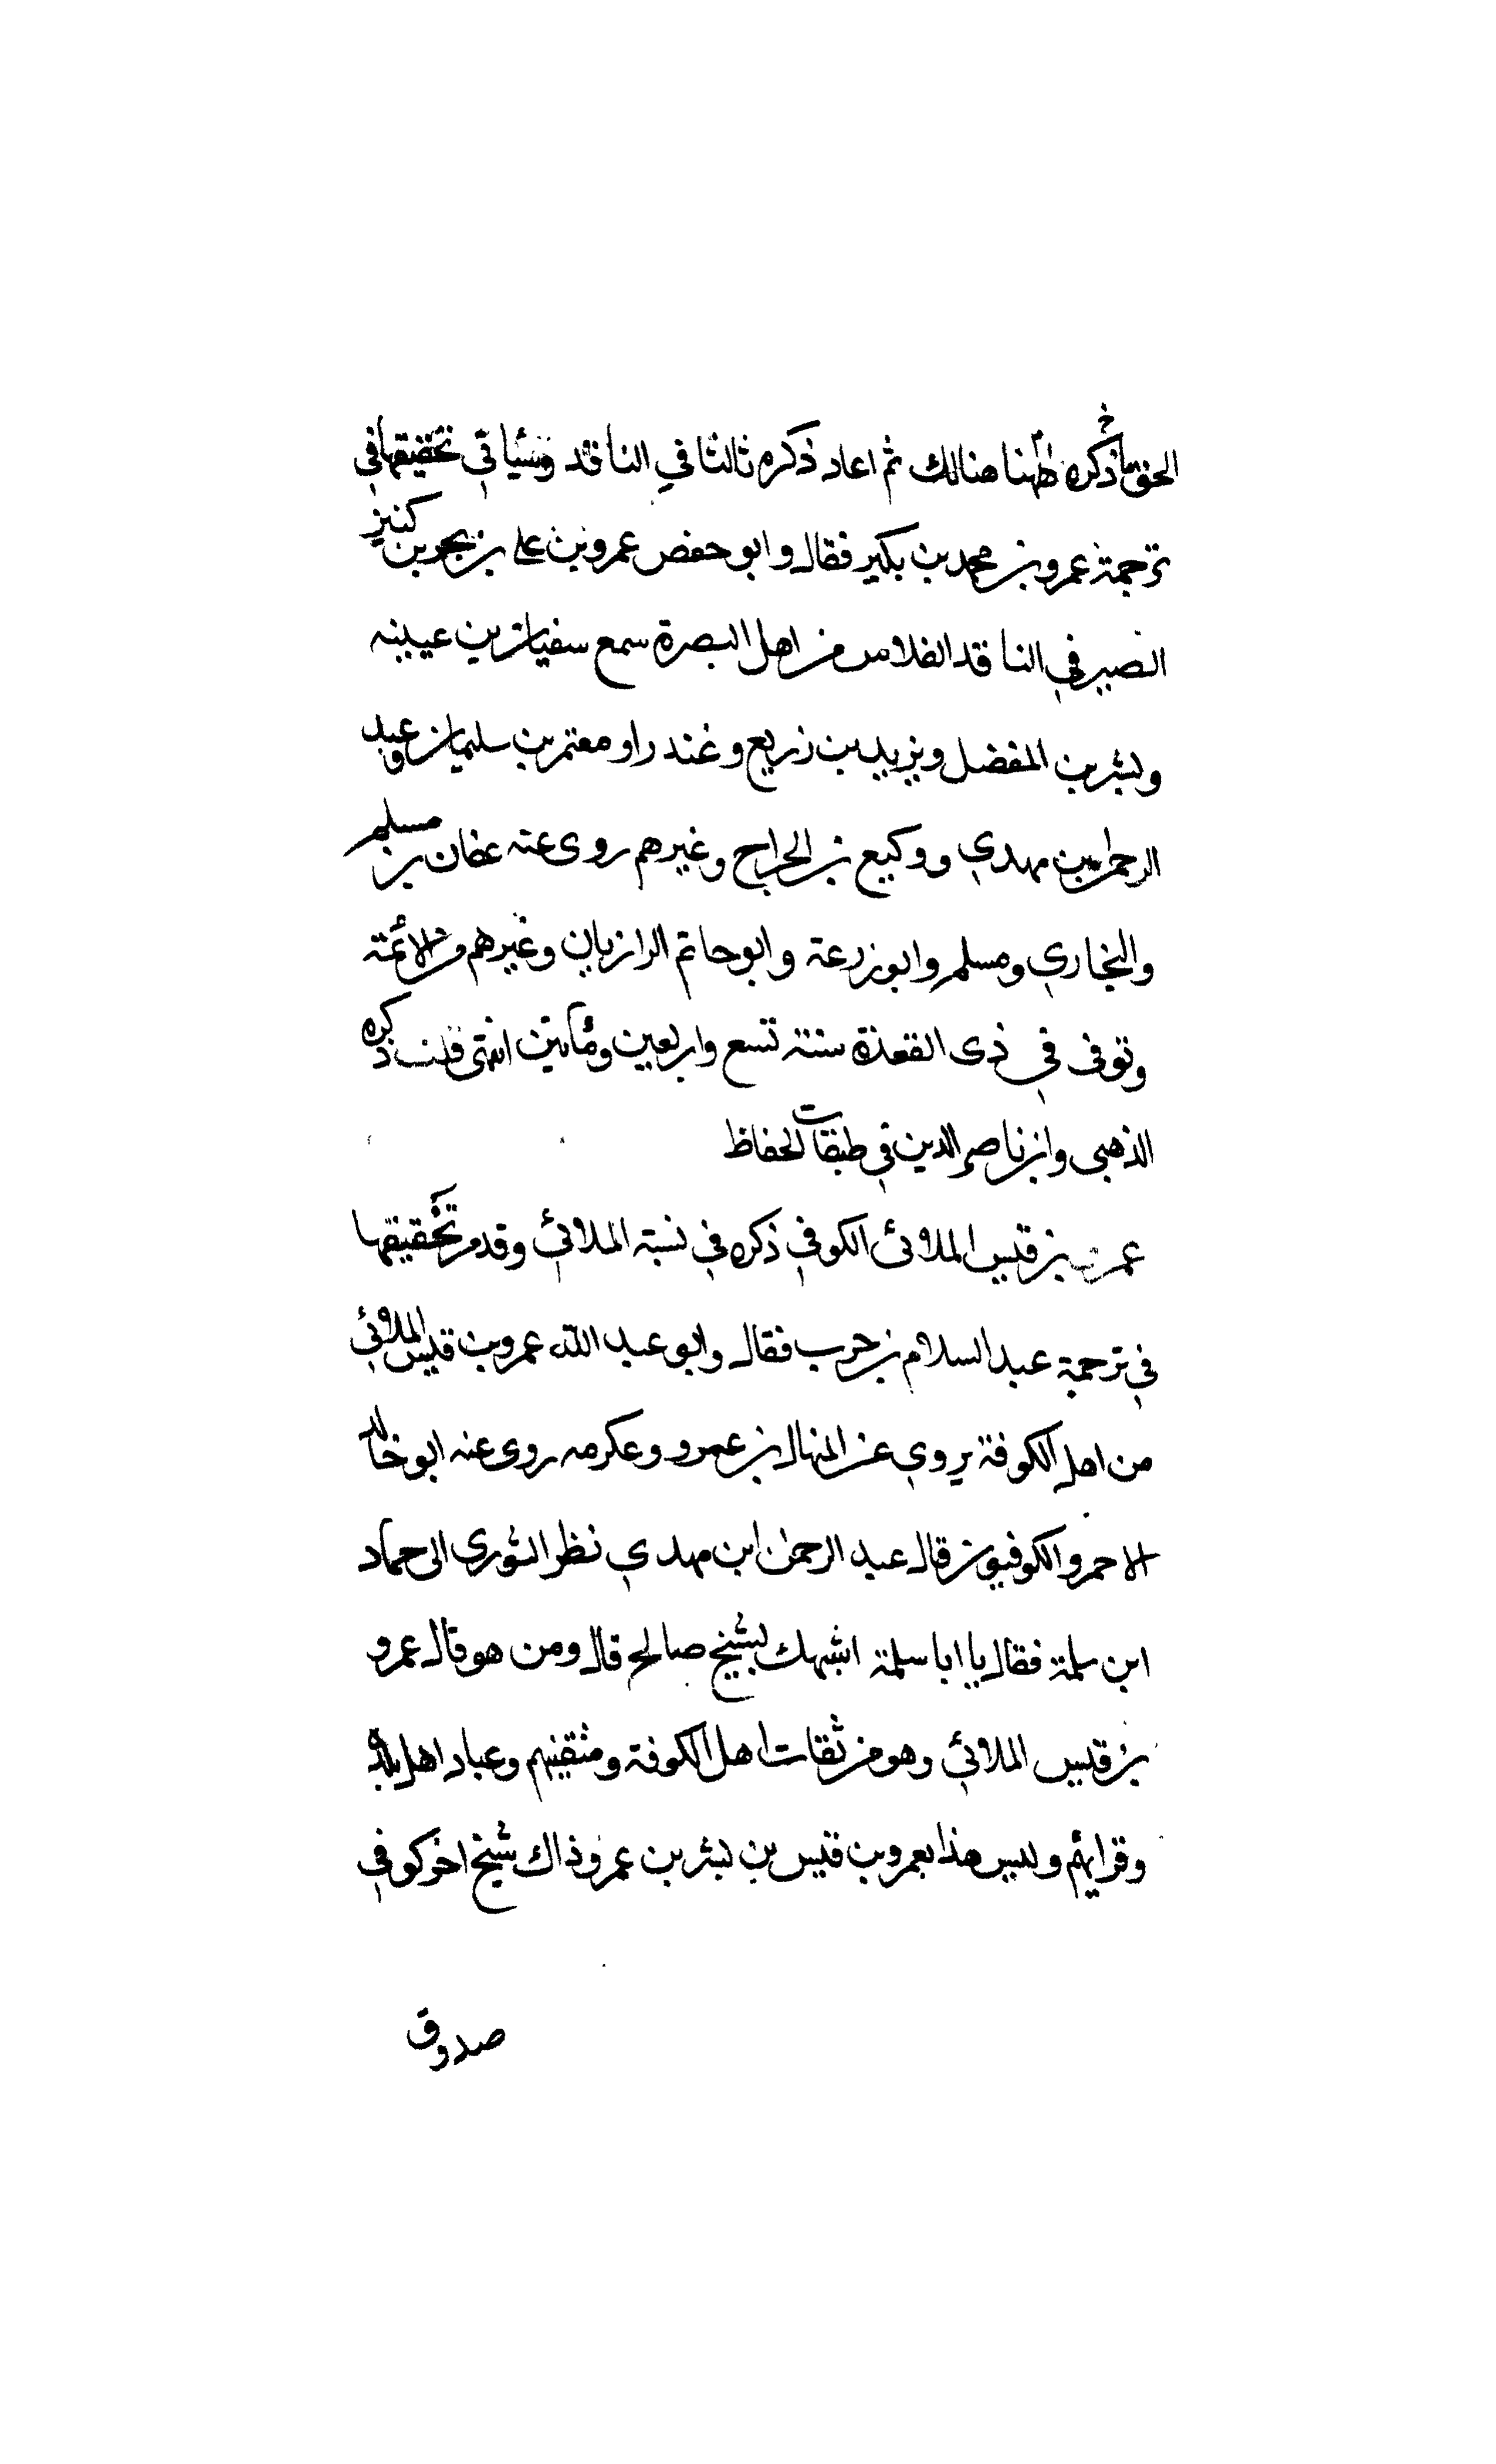 الحق ما ذكره ههنا هنالك ثم اعاد ذكره ثالثا في الناقد وسيأتي تحقيقها في
ترجمة عمرو بن محمد بن بكير فقال وابو حفص عمرو بن علي بن بحر بن كنيز
الصيرفي الناقد الفلاس من اهل البصرة سمع سفيان بن عيينه
وبشر بن المفضل ويزيد بن زريع وغندرا ومعتمر بن سليمان وعبد
الرحمن بن مهدي ووكيع بن الجراح وغيرهم روى عنه عفان بن مسلم
والبخاري ومسلم وابو زرعة وابو حاتم الرازيان وغيرهم من الائمة
وتوفى في ذى القعدة سنة تسع واربعين ومأتين انتهى قلت ذكره
الذهبي وابن ناصر الدين في طبقات الحفاظ
عمرو بن قيس الملائى الكوفي ذكره في نسبة الملائي وقد مر تحقيقها
في ترجمة عبد السلام بن حرب فقال وابو عبد الله عمرو بن قيس الملائي
من اهل الكوفة يروي عن المنهال بن عمرو وعكرمه روى عنه ابو خالد
الاحمر والكوفيون قال عبد الرحمن ابن مهدي نظر الثورى الى حماد
ابن سلمة فقال يا ابا سلمة اشبهك بشيخ صالح قال ومن هو قال عمرو
بن قيس الملائي وهو من ثقات اهل الكوفة ومتقنيهم وعباد اهل بلده
وقرائهم وليس هذا بعمرو بن قيس بن بشر بن عمرو ذاك شيخ اخر كوفي
صدوق